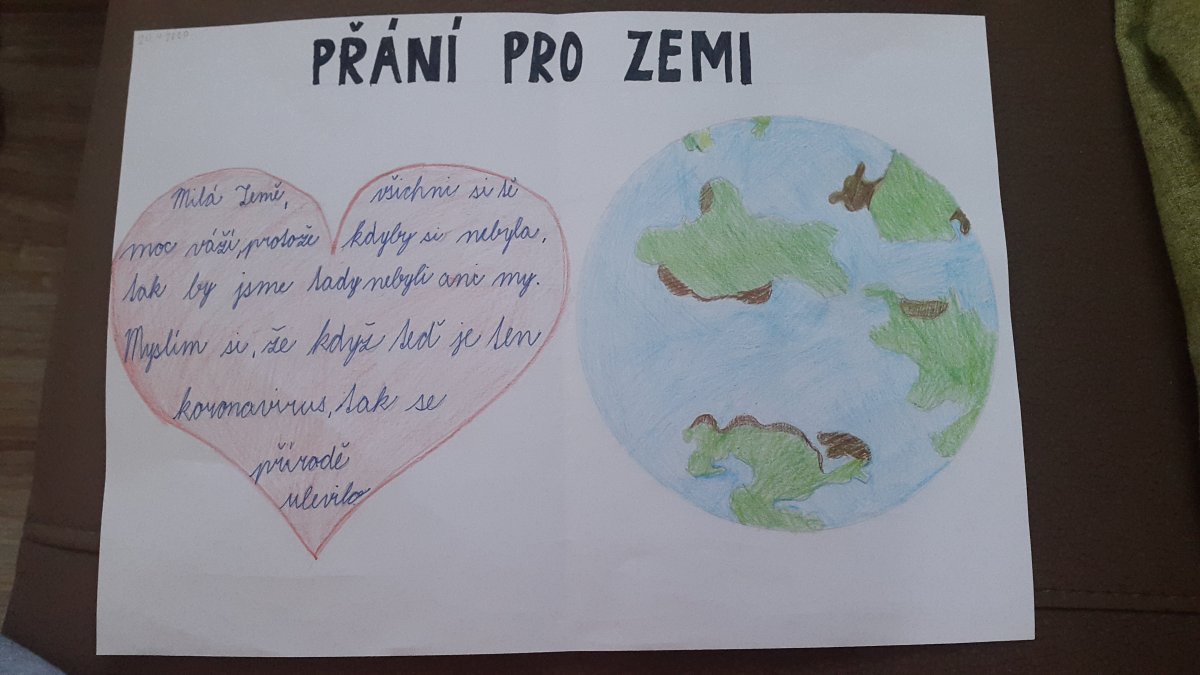 PŘÁNÍ PRO ZEMI
Milá Země, všichni si tě
moc váží, protože kdyby si nebyla,
tak by jsme tady nebyli ani my.
Myslím si, že když teď je ten
koronavirus, tak se
přírodě
ulevilo